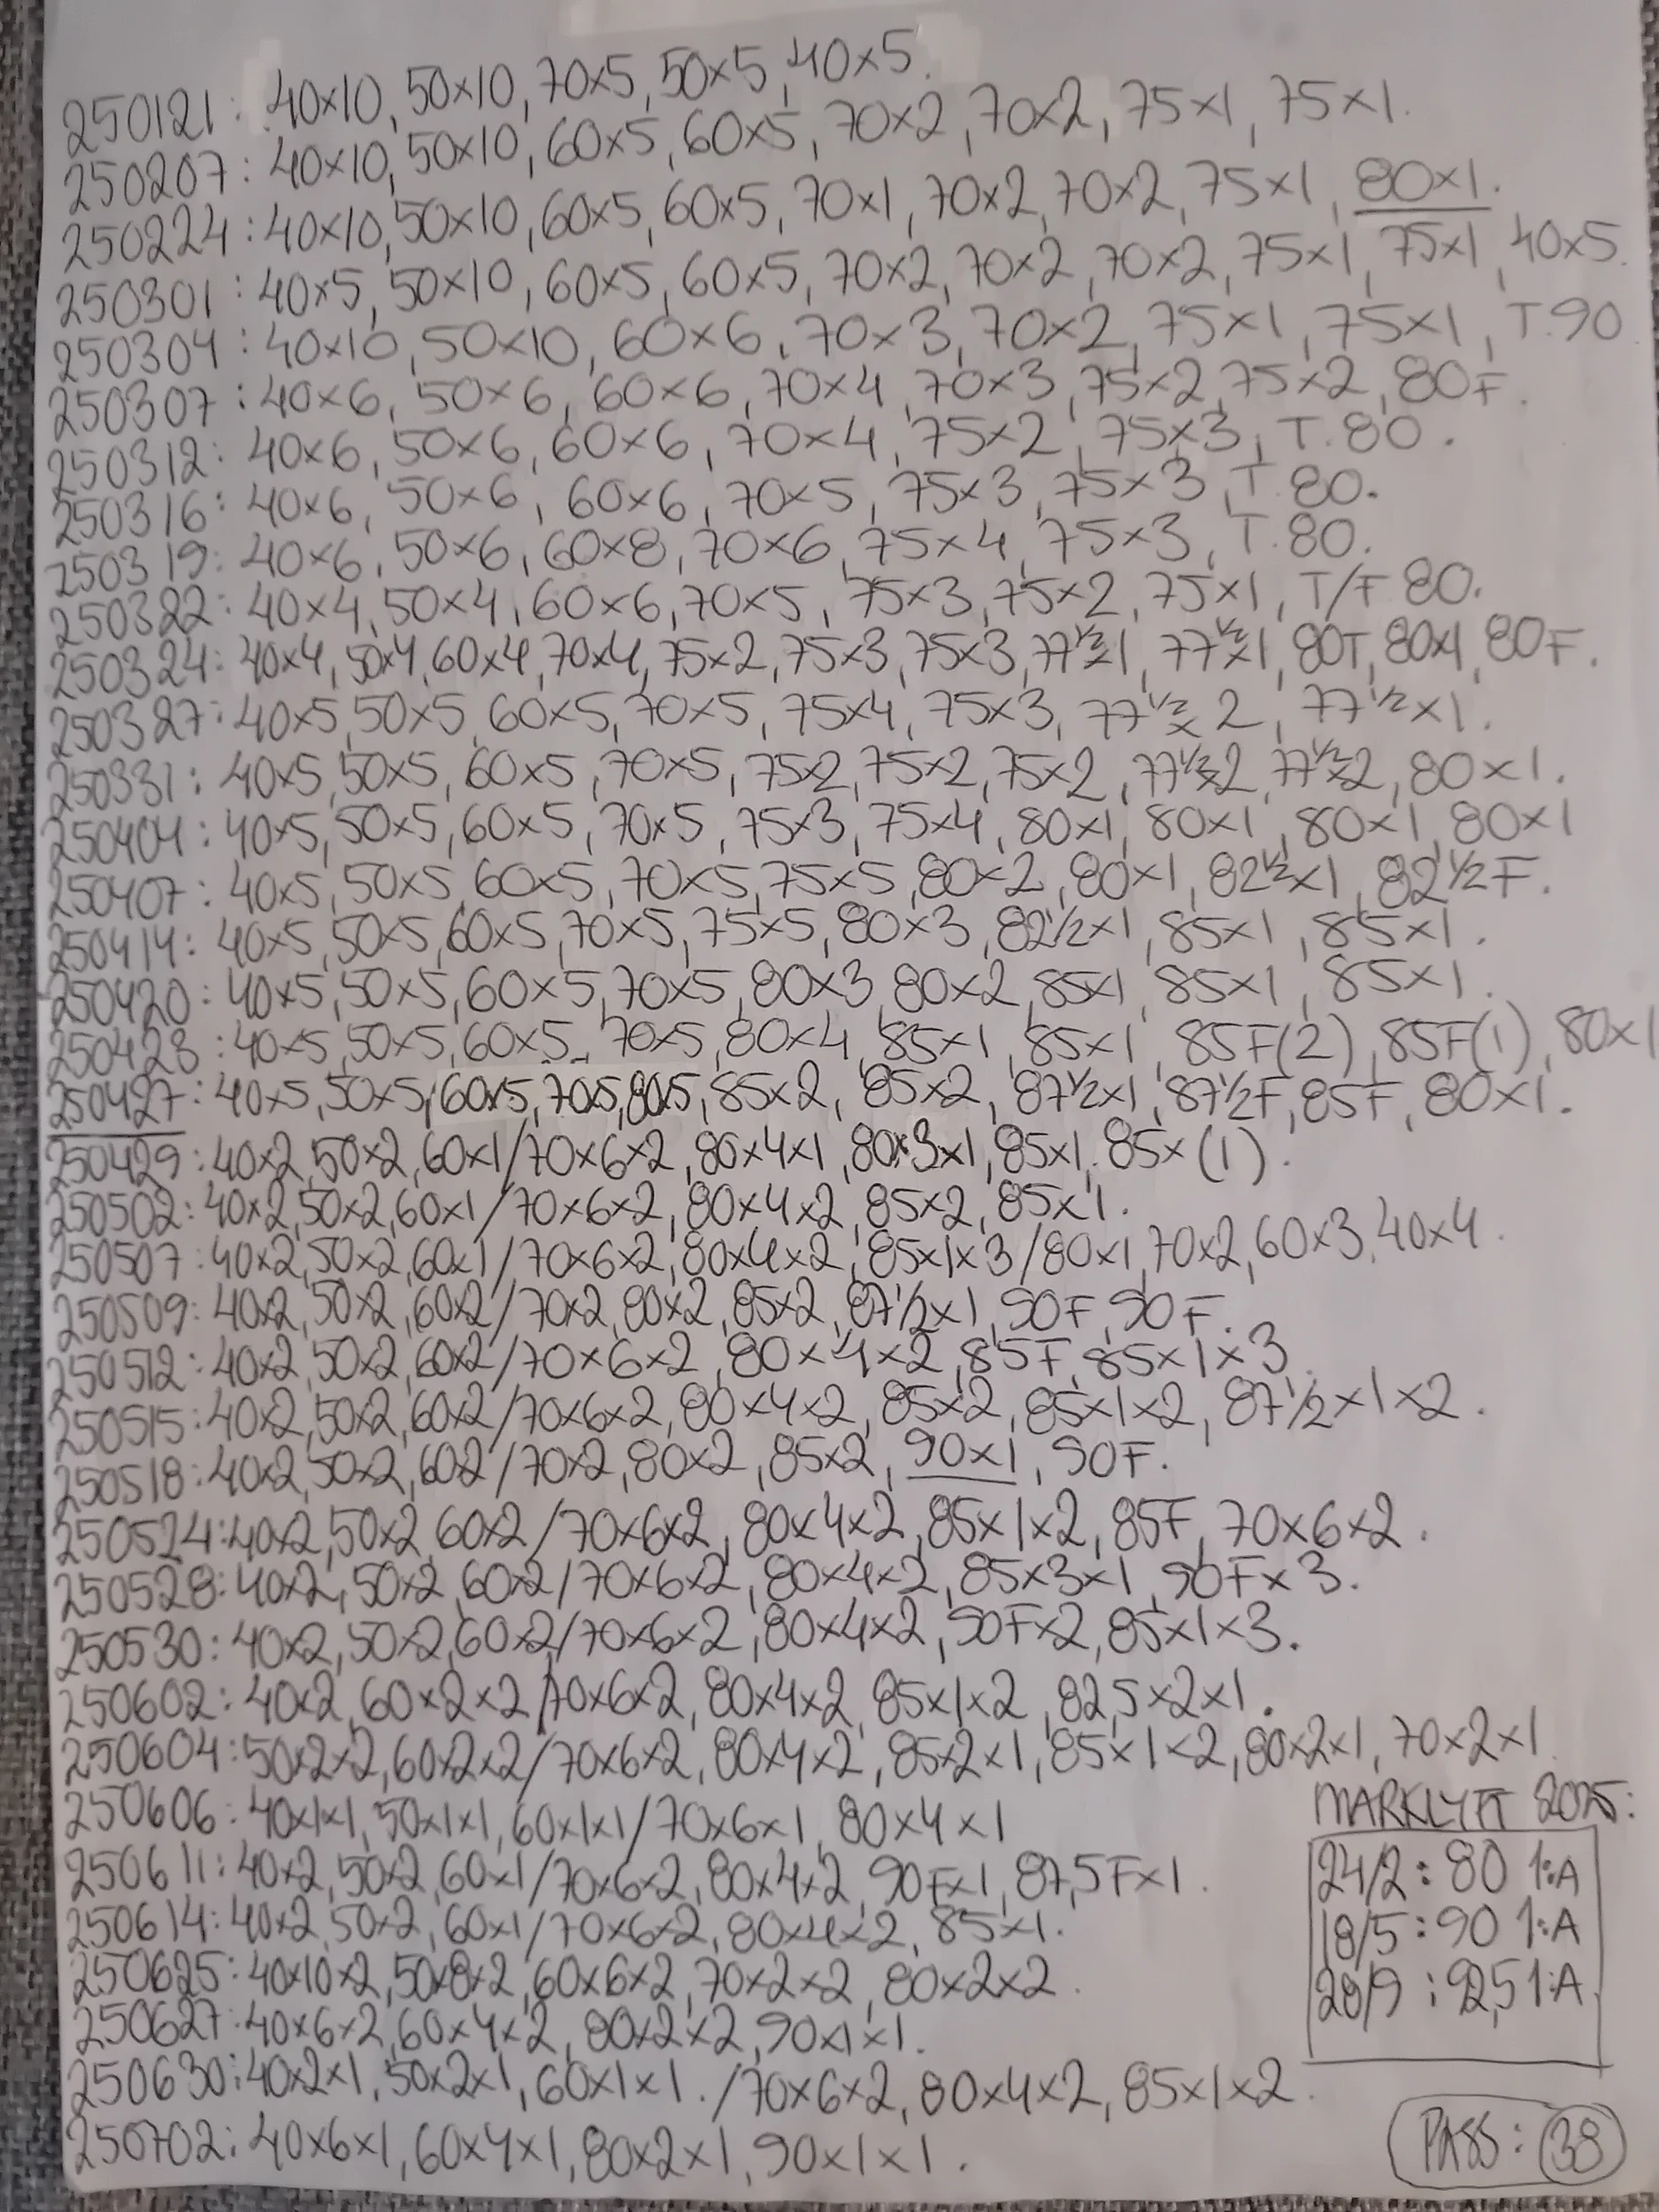 250121: 40×10, 50×10, 70×5, 50×5, 40×5.
250207: 40×10, 50×10, 60×5, 60×5, 70×2, 70×2, 75×1, 75×1.
250224: 40×10, 50×10, 60×5, 60×5, 70×1, 70×2, 70×2, 75×1, 80×1.
250301: 40×5, 50×10, 60×5, 60×5, 70×2, 70×2, 70×2, 75×1, 75×1, 40×5.
250304: 40×10, 50×10, 60×6, 70×3, 70×2, 75×1, 75×1, T.90
250307: 40×6, 50×6, 60×6, 70×4, 70×3, 75×2, 75×2, 80F.
250312: 40×6, 50×6, 60×6, 70×4, 75×2, 75×3, T.80.
250316: 40×6, 50×6, 60×6, 70×5, 75×3, 75×3, T.80.
250319: 40×6, 50×6, 60×8, 70×6, 75×4, 75×3, T.80.
250322: 40×4, 50×4, 60×6, 70×5, 75×3, 75×2, 75×1, T/F 80.
250324: 40×4, 50×4, 60×4, 70×4, 75×2, 75×3, 75×3, 77½×1, 77½×1, 80T, 80×1, 80F.
250327: 40×5, 50×5, 60×5, 70×5, 75×4, 75×3, 77½×2, 77½×1.
250331: 40×5, 50×5, 60×5, 70×5, 75×2, 75×2, 75×2, 77½×2, 77½×2, 80×1.
250404: 40×5, 50×5, 60×5, 70×5, 75×3, 75×4, 80×1, 80×1, 80×1, 80×1
250407: 40×5, 50×5, 60×5, 70×5, 75×5, 80×2, 80×1, 82½×1, 82½F.
250414: 40×5, 50×5, 60×5, 70×5, 75×5, 80×3, 82½×1, 85×1, 85×1.
250420: 40×5, 50×5, 60×5, 70×5, 80×3, 80×2, 85×1, 85×1, 85×1.
250423: 40×5, 50×5, 60×5, 70×5, 80×4, 85×1, 85×1, 85F(2), 85F(1), 80×1
250427: 40×5, 50×5, 60×5, 70×5, 80×5, 85×2, 85×2, 87½×1, 87½F, 85F, 80×1.
250429: 40×2, 50×2, 60×1/70×6×2, 80×4×1, 80×3×1, 85×1, 85×(1).
250502: 40×2, 50×2, 60×1/70×6×2, 80×4×2, 85×2, 85×1.
250507: 40×2, 50×2, 60×1/70×6×2, 80×4×2, 85×1×3/80×1, 70×2, 60×3, 40×4.
250509: 40×2, 50×2, 60×2/70×2, 80×2, 85×2, 87½×1, 90F, 90F.
250512: 40×2, 50×2, 60×2/70×6×2, 80×4×2, 85F, 85×1×3.
250515: 40×2, 50×2, 60×2/70×6×2, 80×4×2, 85×2, 85×1×2, 87½×1×2.
250518: 40×2, 50×2, 60×2/70×2, 80×2, 85×2, 90×1, 90F.
250524: 40×2, 50×2, 60×2/70×6×2, 80×4×2, 85×1×2, 85F, 70×6×2.
250528: 40×2, 50×2, 60×2/70×6×2, 80×4×2, 85×3×1, 90F×3.
250530: 40×2, 50×2, 60×2/70×6×2, 80×4×2, 90F×2, 85×1×3.
250602: 40×2, 60×2×2/70×6×2, 80×4×2, 85×1×2, 82,5×2×1.
250604: 50×2×2, 60×2×2/70×6×2, 80×4×2, 85×2×1, 85×1×2, 80×2×1, 70×2×1.
250606: 40×1×1, 50×1×1, 60×1×1/70×6×1, 80×4×1
250611: 40×2, 50×2, 60×1/70×6×2, 80×4×2, 90F×1, 87,5F×1.
250614: 40×2, 50×2, 60×1/70×6×2, 80×4×2, 85×1.
250625: 40×10×2, 50×8×2, 60×6×2, 70×2×2, 80×2×2.
250627: 40×6×2, 60×4×2, 80×2×2, 90×1×1.
250630: 40×2×1, 50×2×1, 60×1×1./70×6×2, 80×4×2, 85×1×2.
250702: 40×6×1, 60×4×1, 80×2×1, 90×1×1.
MARKLYFT 2025:
24/2: 80 1:A
18/5: 90 1:A
28/9: 92,5 1:A
PASS: 38